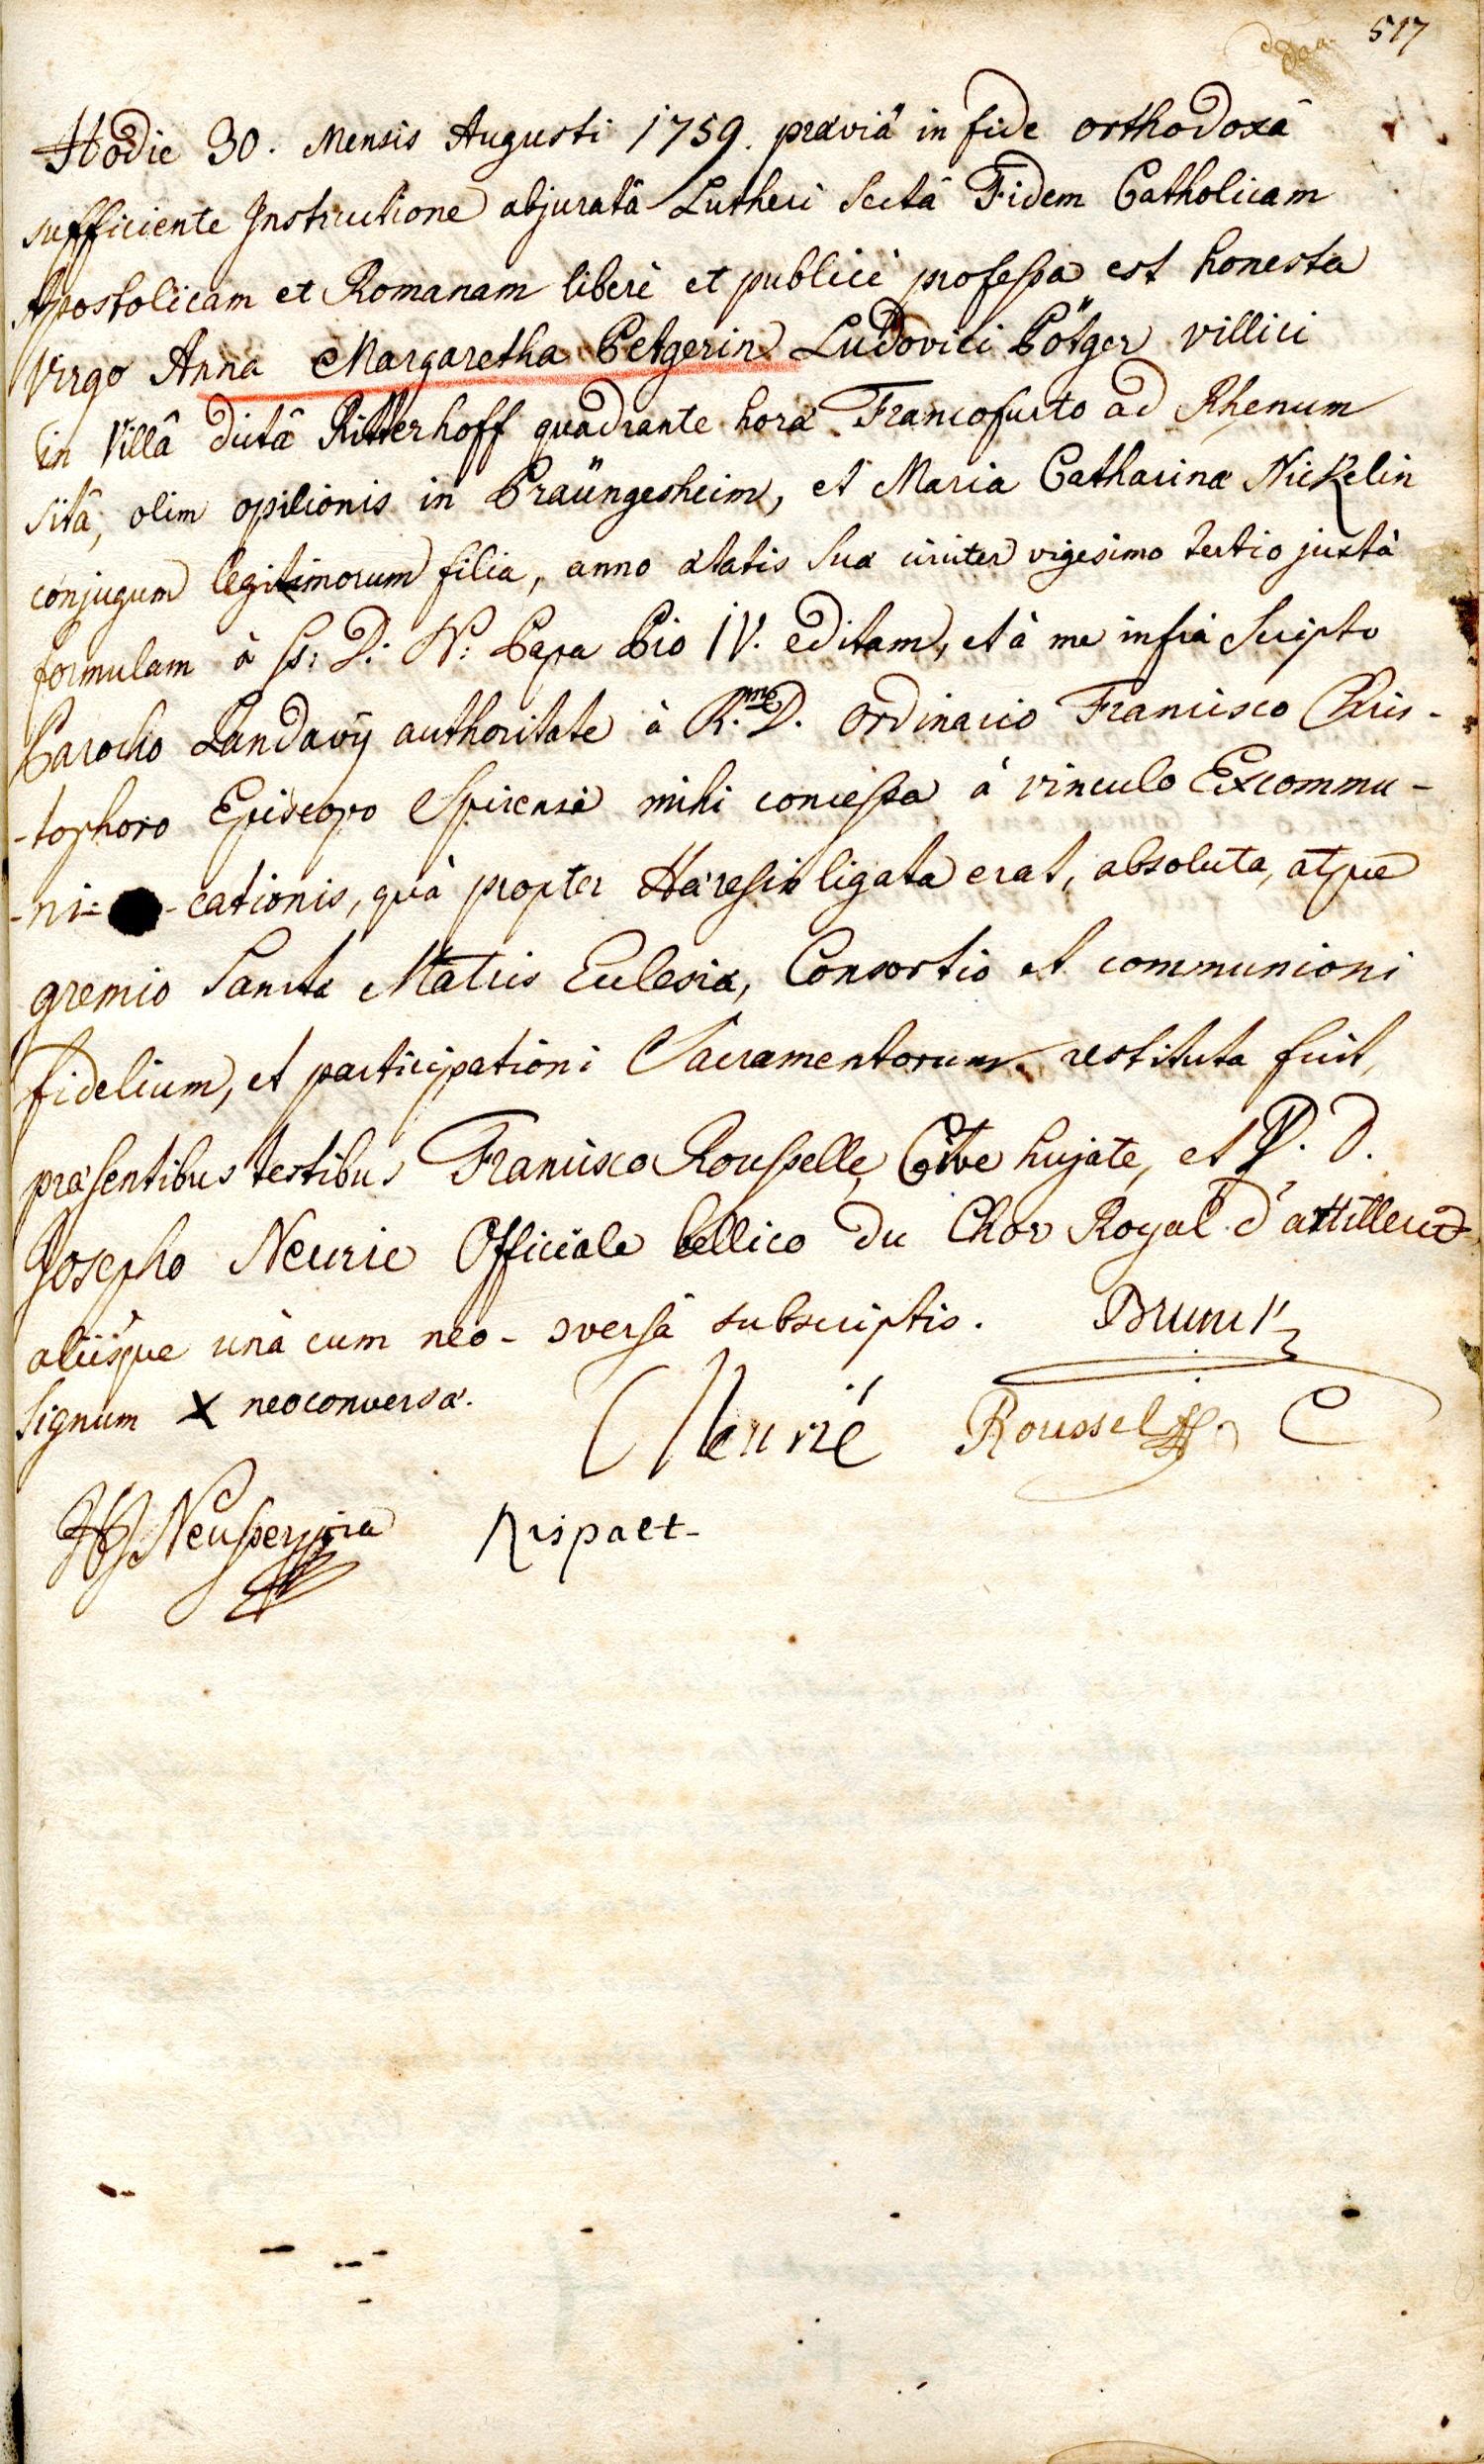 517
Hodie 30. Mensis Augusti 1759. præviâ in fide orthodoxâ
sufficiente Instructione abjuratâ Lutheri Sectâ Fidem Catholicam
Apostolicam et Romanam liberè et publicè professa est honesta
Virgo Anna Margaretha Betgerin Ludovici Bötger villici
in Villâ dictâ Ritterhoff quadrante horæ Francofurto ad Rhenum
sitâ, olim opilionis in Braüngesheim, et Maria Catharina Nickelin
conjugum legitimorum filia, anno ætatis suæ circiter vigesimo tertio juxtà
formulam à SS: D: N: Papa Pio IV. editam, et à me infrà scripto
Parocho Landavij authoritate à R.mo D. ordinario Francisco Chris-
-tophoro Episcopo Spirensi mihi concessa à vinculo Excommu-
-ni- -cationis, quâ propter Hæresin ligata erat, absoluta, atque
gremio Sanctæ Matris Ecclesiæ, Consortio et communioni
fidelium, et participationi Sacramentorum restituta fuit,
præsentibus testibus Francisco Rousselle, Cive hujate, et P. D.
Josepho Neurie Officiale bellico du Chor Royal d'artillerie
aliisque unà cum neo-conversâ subscriptis. Brunck
Signum X neoconversæ.
Neurié Roussel
Rispaet